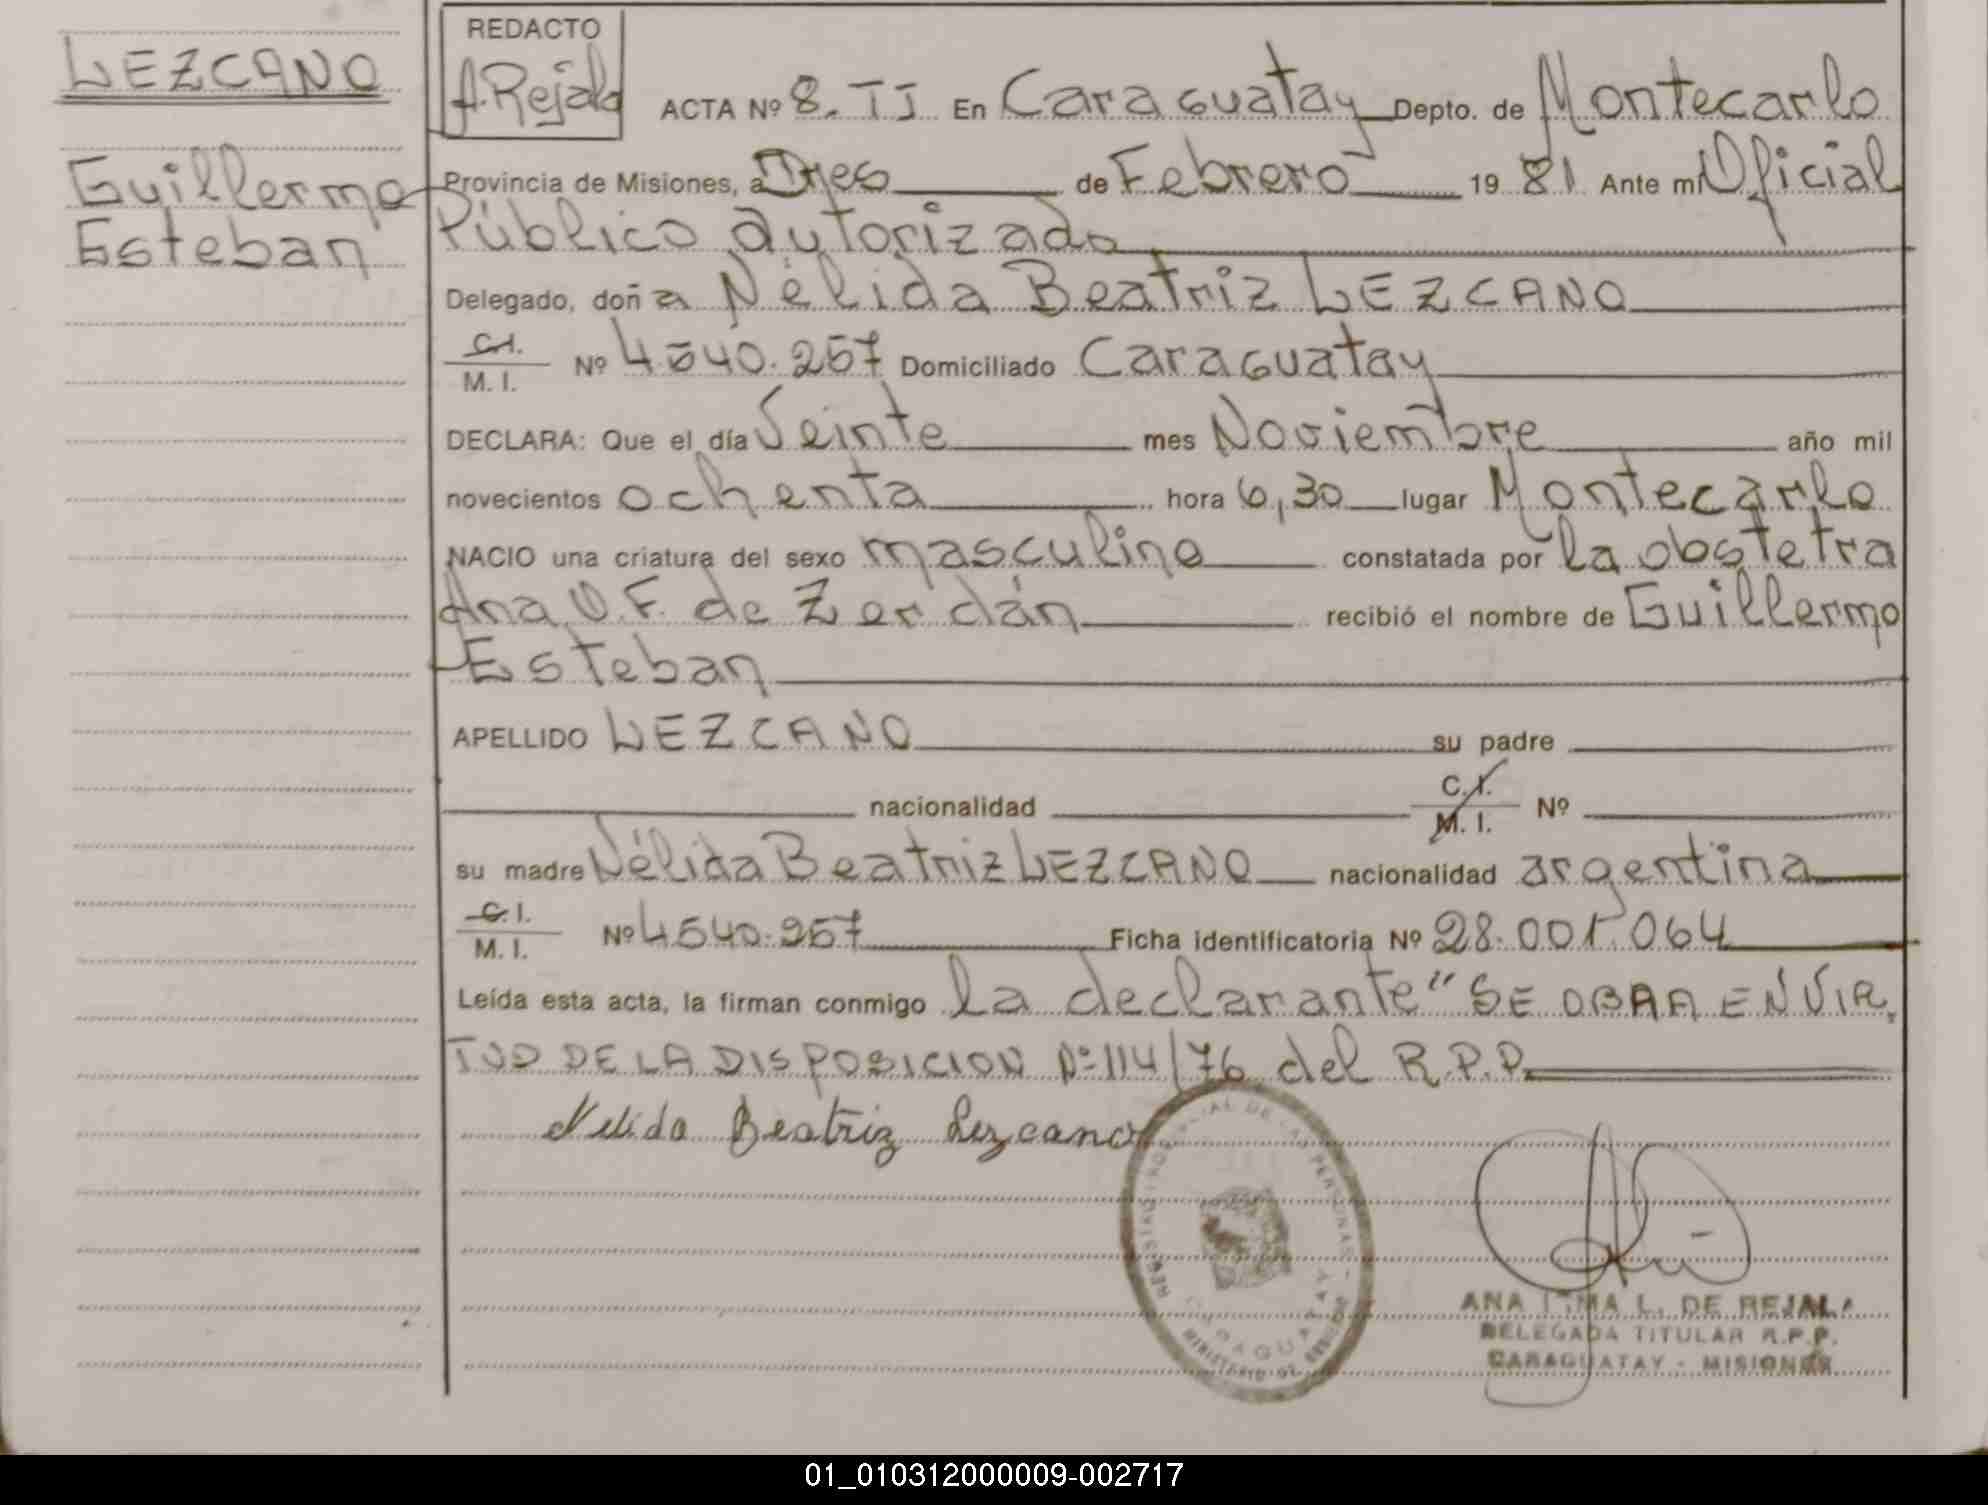 LEZCANO
Guillermo
Esteban
REDACTO
A. Rejala
ACTA Nº 8. TJ En Caraguatay Depto. de Montecarlo
Provincia de Misiones, a Tres de Febrero 19 81 Ante mí Oficial
Público autorizado
Delegado, doña Nélida Beatriz LEZCANO
C.I. / M. I. Nº 4540.257 Domiciliado Caraguatay
DECLARA: Que el día Veinte mes Noviembre año mil
novecientos ochenta hora 6,30 lugar Montecarlo
NACIO una criatura del sexo masculino constatada por la obstetra
Ana O. F. de Zerdán recibió el nombre de Guillermo
Esteban
APELLIDO LEZCANO su padre
nacionalidad C.I. / M. I. Nº
su madre Nélida Beatriz LEZCANO nacionalidad argentina
C.I. / M. I. Nº 4540.257 Ficha identificatoria Nº 28.001.064
Leída esta acta, la firman conmigo la declarante "SE OBRA EN VIR
TUD DE LA DISPOSICION Nº 114/76 del R.P.P.
Nelida Beatriz Lezcano
ANA L. DE REJALA
DELEGADA TITULAR R.P.P.
CARAGUATAY - MISIONES
01_010312000009-002717